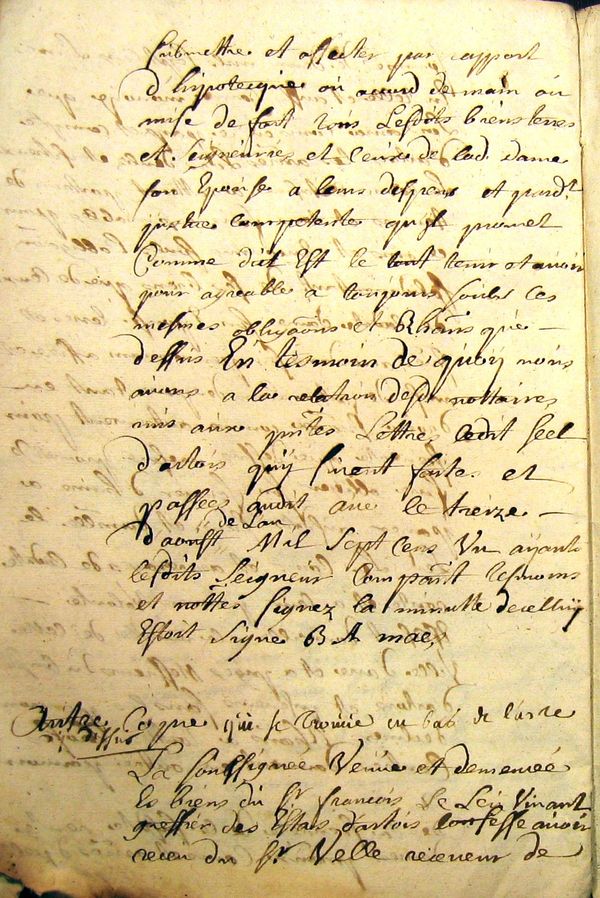 submettre et affecter par rapport
d'hipotecque ou accord de main ou
mise de fait tous lesdits biens terres
et seigneuries et ceux de lad. dame
son Epouse a leurs despens et pardt
justice competente qu'il promet
Comme dit Est le tout tenir et avoir
pour agreable a toujours soubs les
mesmes obligaons et que
dessus En tesmoin de quoy nous
avons a la relation desd. nottaires
mis aux pntes Lettres ledit seel
d'artois quy furent faites et
passées audit le treize
de Lan
d'aoust Mil Sept Cens Un ayants
lesdits Seigneur Compant tesmoins
et nottes signez la minutte de celluy
Estoit signé
Autre Copye quy se trouve en bas de l'acte
La soubsignée Veuve et demeurée
Es biens du Sr françois le Vinant
greffier des Estats d'artois Confesse avoir
receu du Sr Velle receveur de